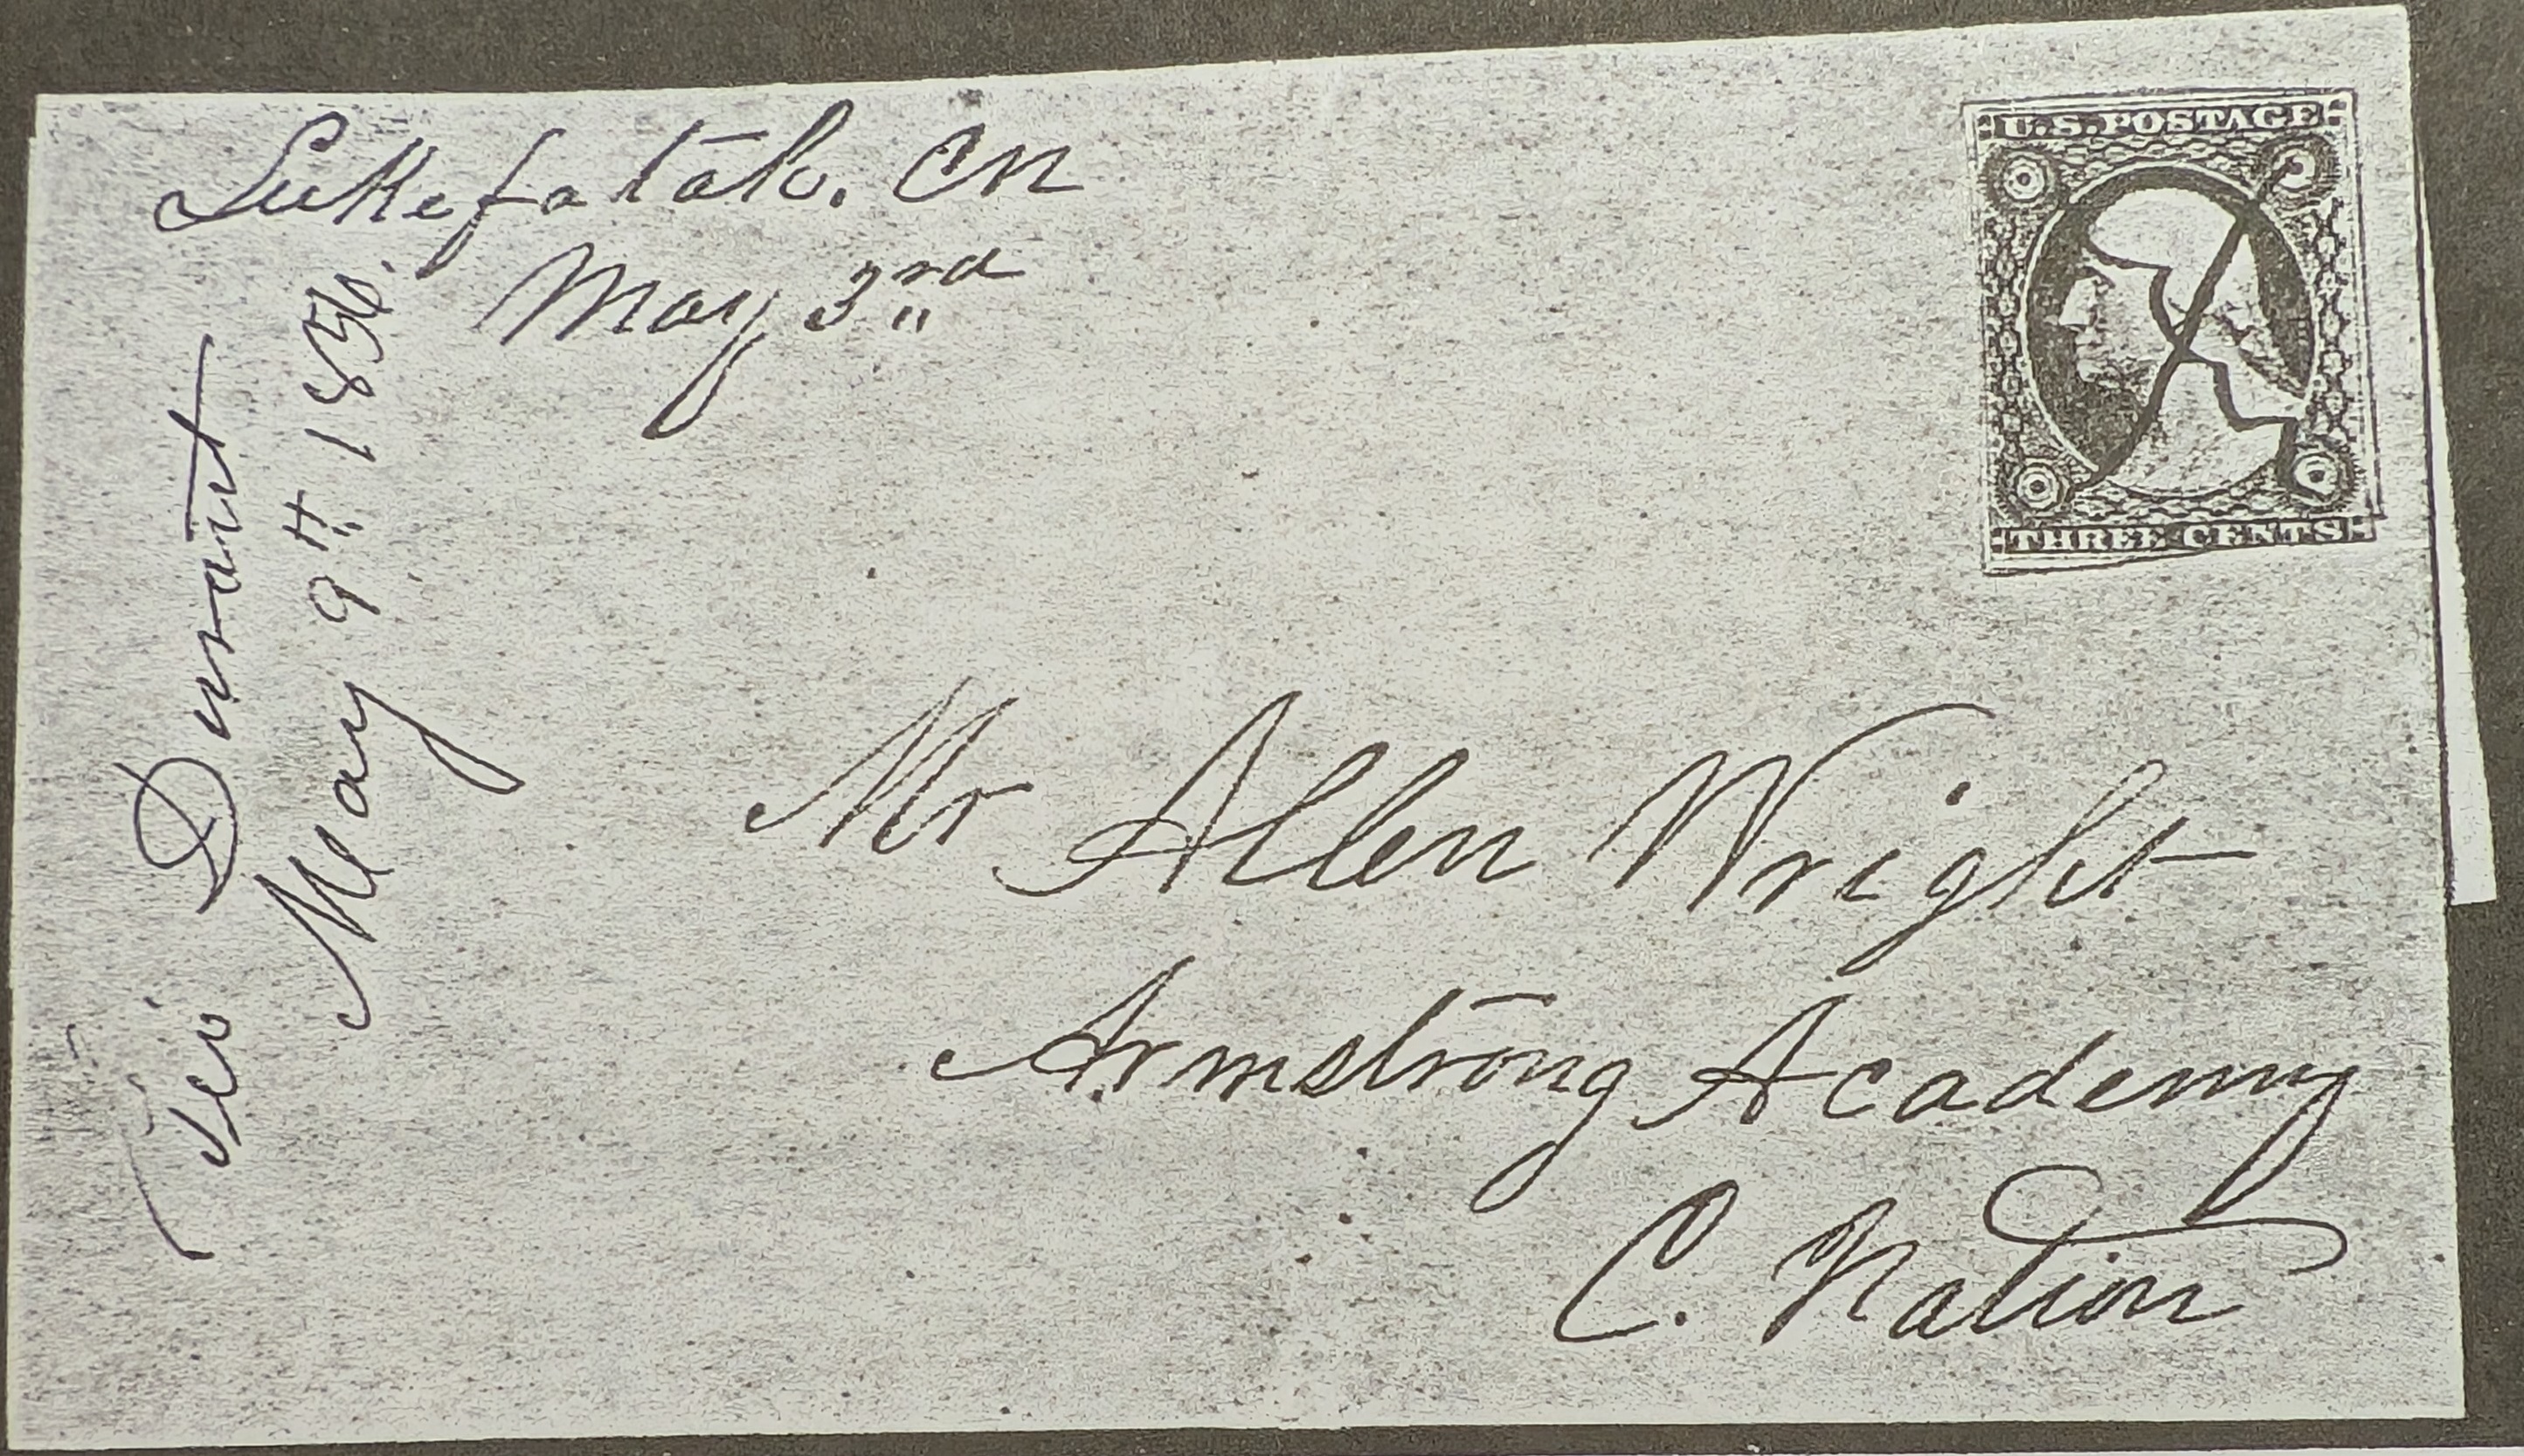 Lukefatah. CN
May 3rd
Durant
May 9th 1856.
U.S. POSTAGE
THREE CENTS
Mr Allen Wright
Armstrong Academy
C. Nation